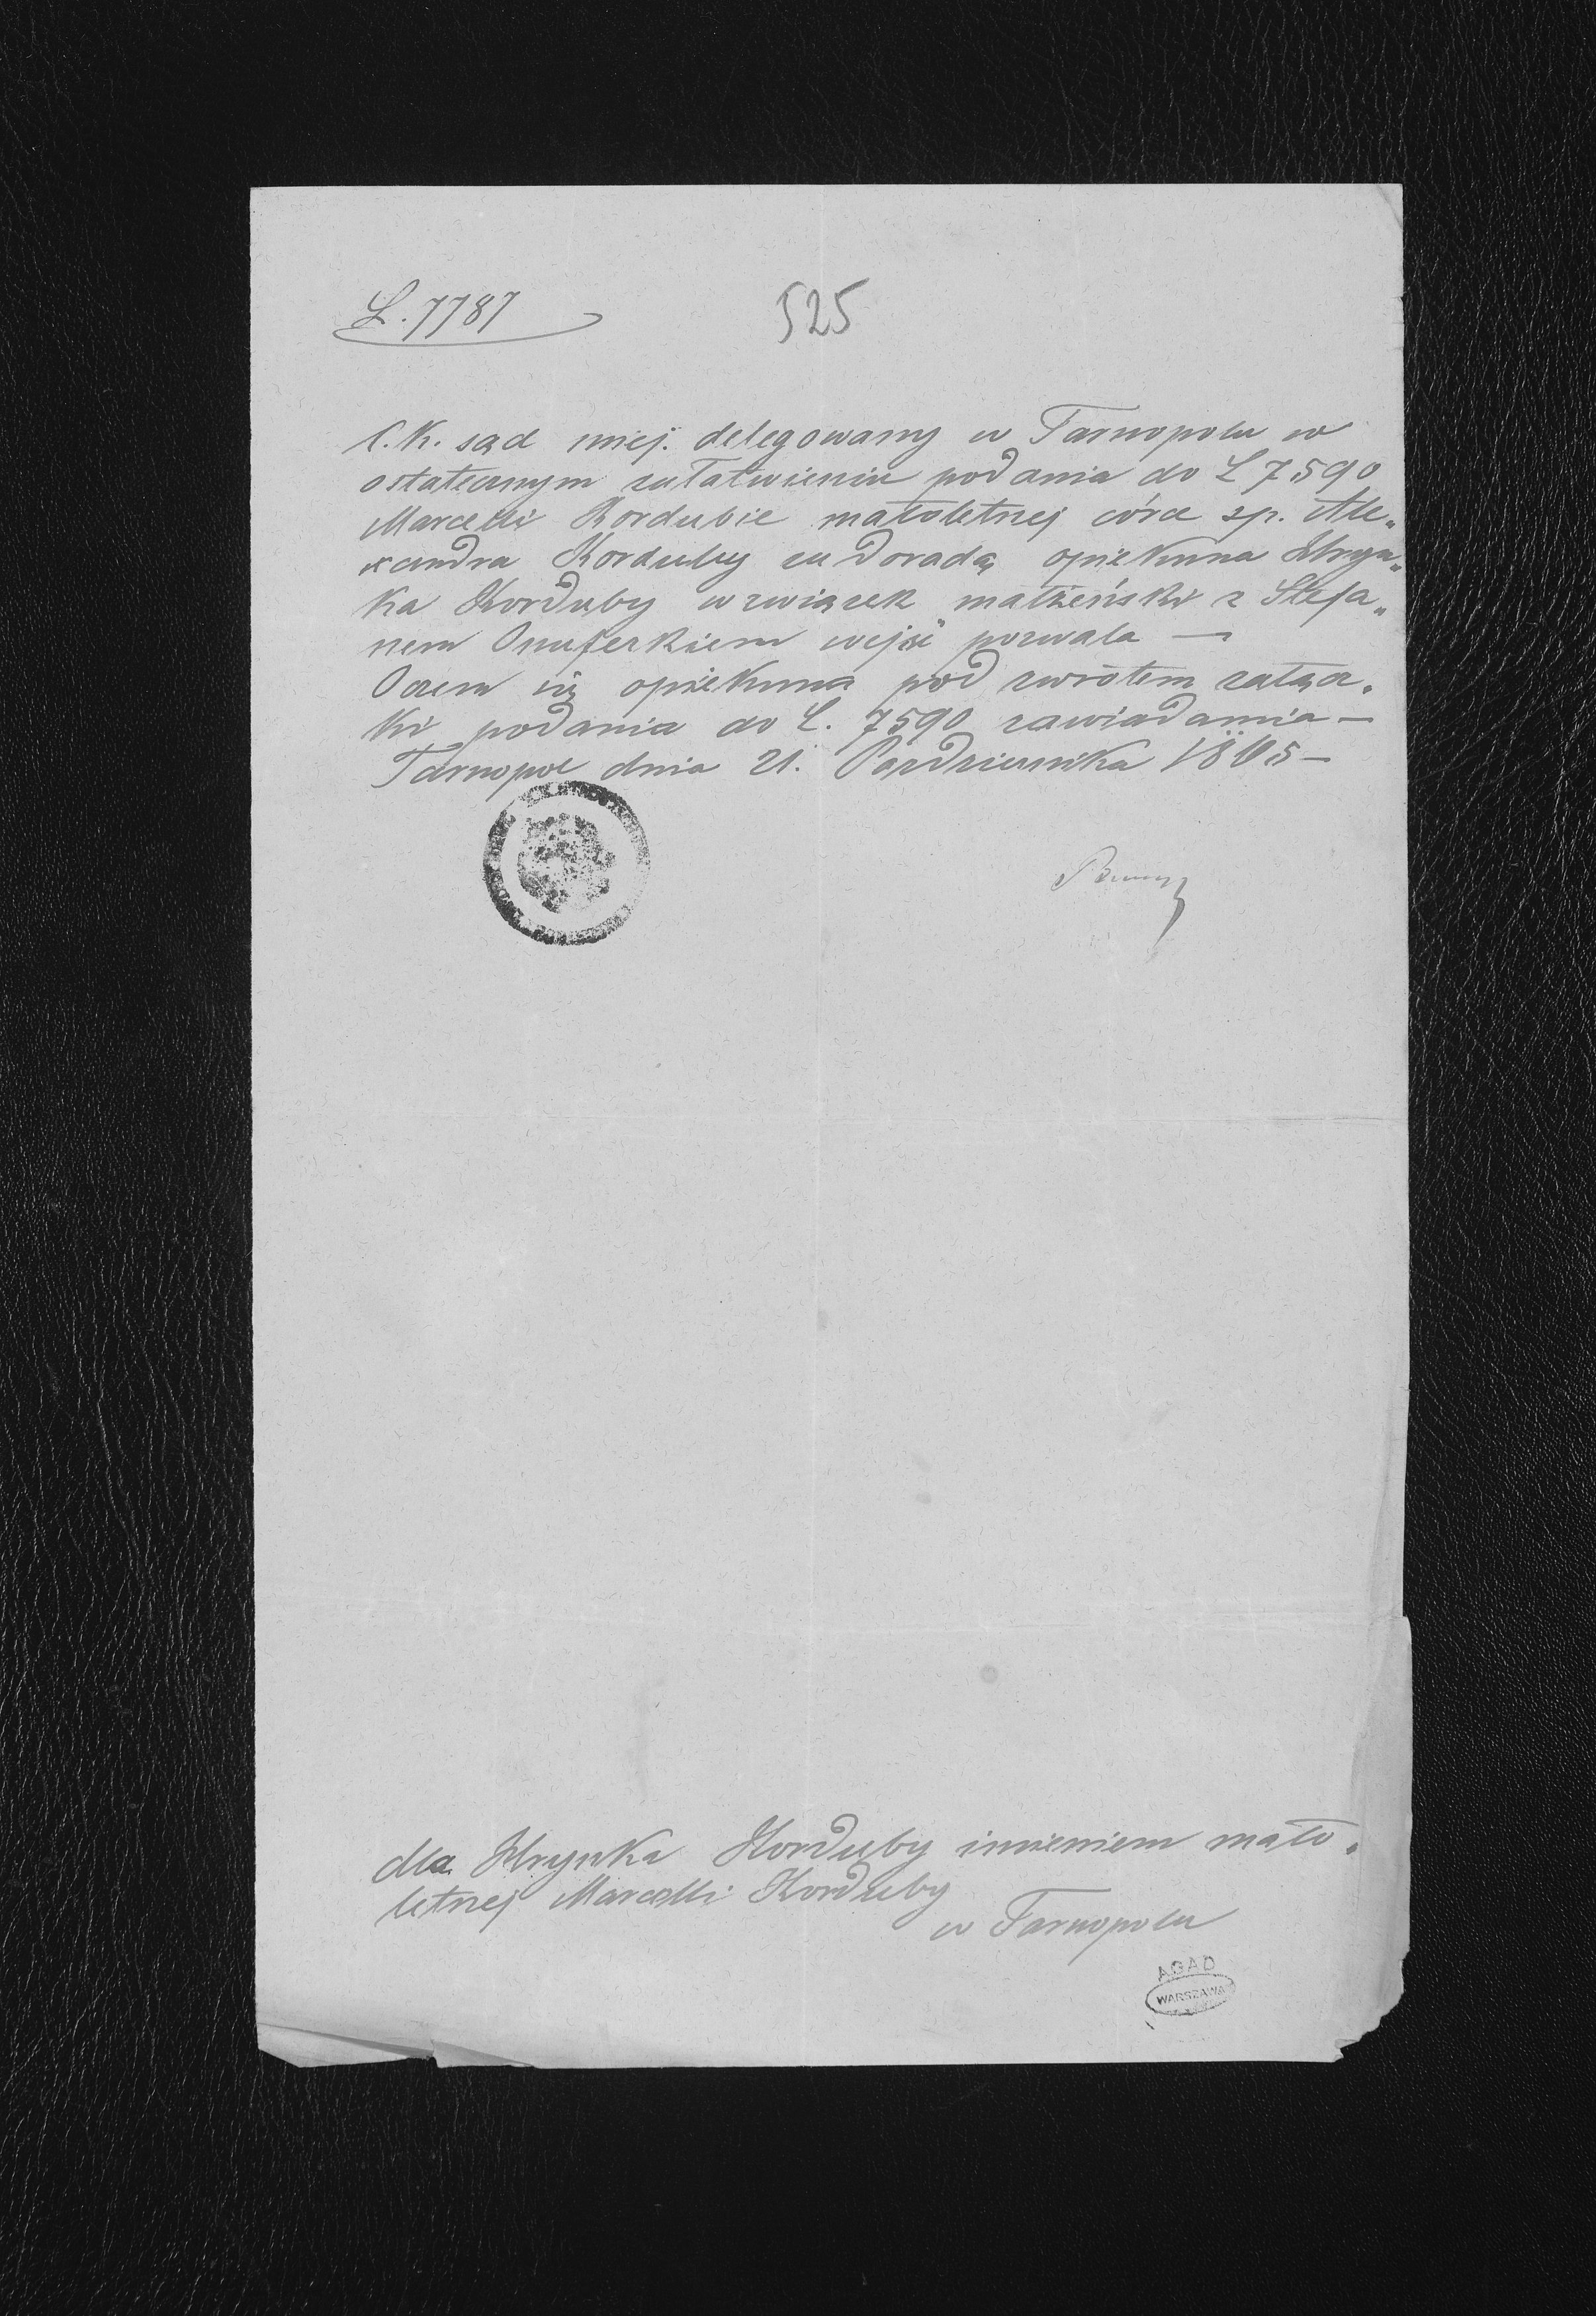 L. 7787
525
C. K. sąd miej. delegowany w Tarnopolu w
ostatecznym załatwieniu podania do L 7590
Marcelli Kordubie małoletnej córce sp. Ale„
xandra Korduby za doradą opiekuna Hryń„
ka Korduby w związek małżeński z Stefa„
nem Onuferkiem wejść pozwala —
Oczem się opiekuna pod zwrotem załącz„
ki podania do L. 7590 zawiadamia —
Tarnopol dnia 21. Października 1865 —
dla Hryńka Korduby imieniem mało„
letnej Marcelli Korduby
w Tarnopolu
AGAD
WARSZAWA